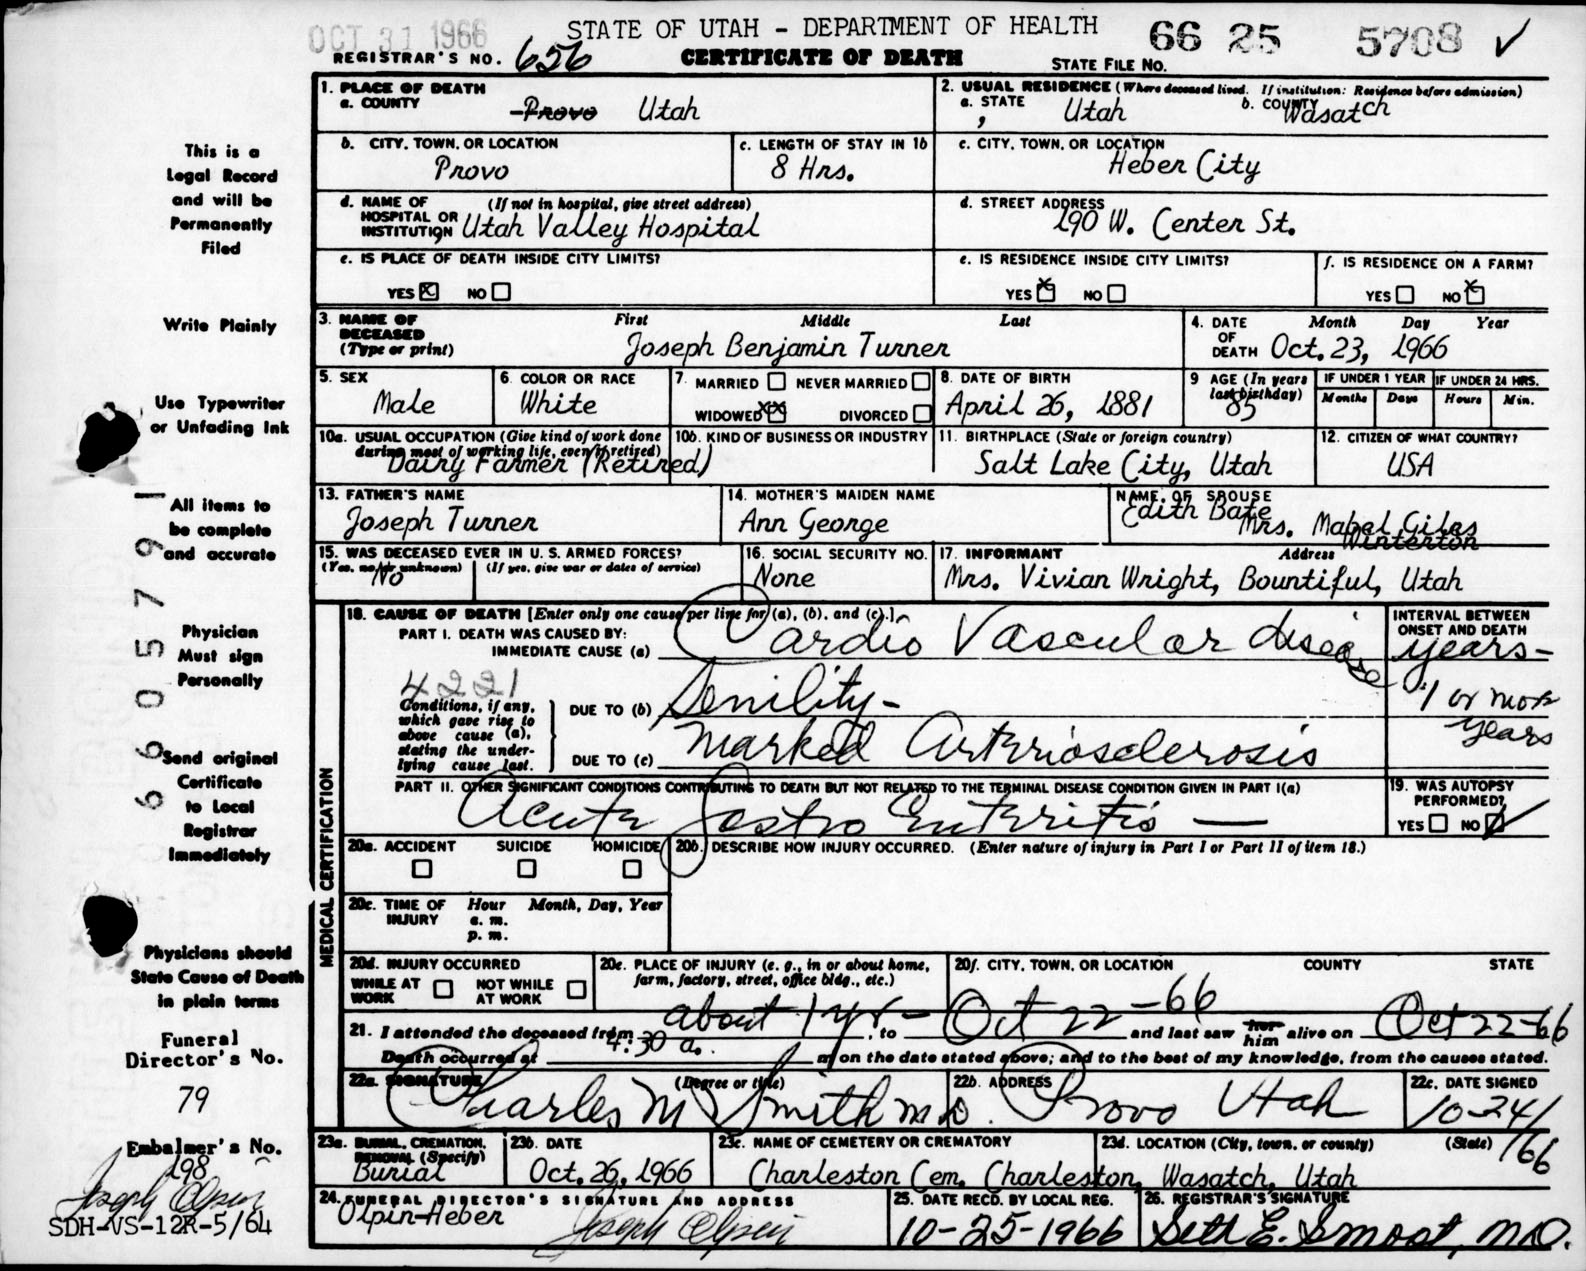 OCT 31 1966
STATE OF UTAH - DEPARTMENT OF HEALTH
66 25 5708 ✓
REGISTRAR'S NO. 656
CERTIFICATE OF DEATH
STATE FILE NO.
1. PLACE OF DEATH
a. COUNTY Provo Utah
2. USUAL RESIDENCE (Where deceased lived. If institution: Residence before admission)
a. STATE Utah b. COUNTY Wasatch
b. CITY, TOWN, OR LOCATION
Provo
c. LENGTH OF STAY IN 1b
8 Hrs.
c. CITY, TOWN, OR LOCATION
Heber City
d. NAME OF HOSPITAL OR INSTITUTION (If not in hospital, give street address)
Utah Valley Hospital
d. STREET ADDRESS
190 W. Center St.
e. IS PLACE OF DEATH INSIDE CITY LIMITS?
YES ☒ NO ☐
e. IS RESIDENCE INSIDE CITY LIMITS?
YES ☒ NO ☐
f. IS RESIDENCE ON A FARM?
YES ☐ NO ☒
3. NAME OF DECEASED (Type or print) First Middle Last
Joseph Benjamin Turner
4. DATE OF DEATH Month Day Year
Oct. 23, 1966
5. SEX
Male
6. COLOR OR RACE
White
7. MARRIED ☐ NEVER MARRIED ☐
WIDOWED ☒ DIVORCED ☐
8. DATE OF BIRTH
April 26, 1881
9 AGE (In years last birthday)
85
IF UNDER 1 YEAR
Months Days
IF UNDER 24 HRS.
Hours Min.
10a. USUAL OCCUPATION (Give kind of work done during most of working life, even if retired)
Dairy Farmer (Retired)
10b. KIND OF BUSINESS OR INDUSTRY
11. BIRTHPLACE (State or foreign country)
Salt Lake City, Utah
12. CITIZEN OF WHAT COUNTRY?
USA
13. FATHER'S NAME
Joseph Turner
14. MOTHER'S MAIDEN NAME
Ann George
NAME OF SPOUSE
Edith Bate
Mrs. Mabel Giles
Winterton
15. WAS DECEASED EVER IN U. S. ARMED FORCES?
(Yes, no, or unknown) (If yes, give war or dates of service)
No
16. SOCIAL SECURITY NO.
None
17. INFORMANT Address
Mrs. Vivian Wright, Bountiful, Utah
MEDICAL CERTIFICATION
18. CAUSE OF DEATH [Enter only one cause per line for (a), (b), and (c).]
PART I. DEATH WAS CAUSED BY:
IMMEDIATE CAUSE (a) Cardio Vascular disease
INTERVAL BETWEEN ONSET AND DEATH
years-
4221
Conditions, if any, which gave rise to above cause (a), stating the underlying cause last.
DUE TO (b) Senility-
1 or more years
DUE TO (c) Marked Arteriosclerosis
PART II. OTHER SIGNIFICANT CONDITIONS CONTRIBUTING TO DEATH BUT NOT RELATED TO THE TERMINAL DISEASE CONDITION GIVEN IN PART I(a)
Acute Gastro Enteritis —
19. WAS AUTOPSY PERFORMED?
YES ☐ NO ☑
20a. ACCIDENT SUICIDE HOMICIDE
☐ ☐ ☐
20b. DESCRIBE HOW INJURY OCCURRED. (Enter nature of injury in Part I or Part II of item 18.)
20c. TIME OF INJURY Hour Month, Day, Year
a. m.
p. m.
20d. INJURY OCCURRED
WHILE AT WORK ☐ NOT WHILE AT WORK ☐
20e. PLACE OF INJURY (e. g., in or about home, farm, factory, street, office bldg., etc.)
20f. CITY, TOWN, OR LOCATION COUNTY STATE
21. I attended the deceased from about 1 yr -, to Oct 22-66 and last saw her him alive on Oct 22-66
Death occurred at 4:30 a. m on the date stated above; and to the best of my knowledge, from the causes stated.
22a. SIGNATURE (Degree or title)
Charles M Smith M.D.
22b. ADDRESS
Provo Utah
22c. DATE SIGNED
10-24/66
23a. BURIAL, CREMATION, REMOVAL (Specify)
Burial
23b. DATE
Oct. 26, 1966
23c. NAME OF CEMETERY OR CREMATORY
Charleston Cem.
23d. LOCATION (City, town, or county) (State)
Charleston, Wasatch, Utah
24. FUNERAL DIRECTOR'S SIGNATURE AND ADDRESS
Olpin-Heber Joseph Olpin
25. DATE RECD. BY LOCAL REG.
10-25-1966
26. REGISTRAR'S SIGNATURE
Seth E. Smoot, M.D.
This is a
Legal Record
and will be
Permanently
Filed
Write Plainly
Use Typewriter
or Unfading Ink
All items to
be complete
and accurate
Physician
Must sign
Personally
Send original
Certificate
to Local
Registrar
Immediately
Physicians should
State Cause of Death
in plain terms
Funeral
Director's No.
79
Embalmer's No.
198
Joseph Olpin
SDH-VS-12R-5/64
6605791